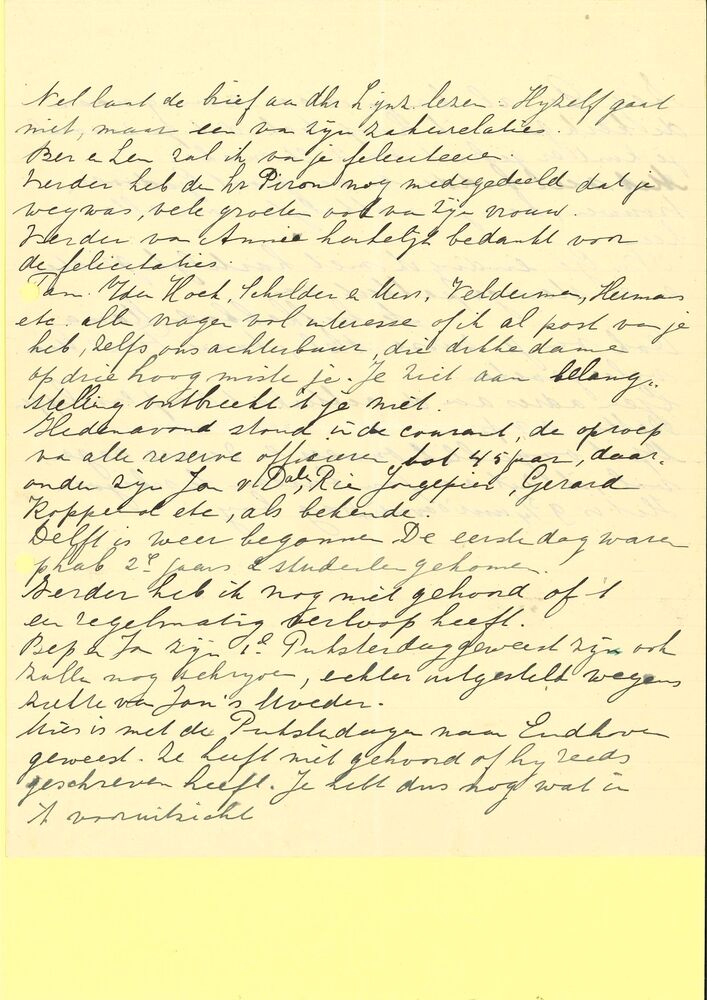 Nel laat de brief aan dhr Lijnz. lezen. Hijzelf gaat
niet, maar een van zijn zakenrelaties.
Ber en Len zal ik van je feliciteeren.
Verder heb de hr Piron nog medegedeeld dat je
weg was, vele groeten ook van zijn vrouw.
Verder van Annie hartelijk bedankt voor
de felicitaties.
Fam. v der Hoek, Schilder en Mevr, Velderman, Hermans
etc. alle vragen vol interesse of ik al post van je
heb, zelfs ons achterbuur, die dikke dame
op drie hoog miste je. Je ziet aan belang-
stelling ontbreekt 't je niet.
Hedenavond stond in de courant, de oproep
van alle reserve officieren tot 45 jaar, daar-
onder zijn Jan v Dale, Rie Jongepier, Gerard
Koppenol etc, als bekende.
Delft is weer begonnen De eerste dag waren
plm 2e jaars studenten gekomen.
Verder heb ik nog niet gehoord of 't
een regelmatig verloop heeft.
Bep en Jan zijn 1e Pinksterdag geweest zijn ook
zullen nog schrijven, echter uitgesteld wegens
ziekte van Jan's Moeder.
Mies is met de Pinksterdagen naar Eindhoven
geweest. Ze heeft niet gehoord of hij reeds
geschreven heeft. Je hebt dus nog wat in
't vooruitzicht